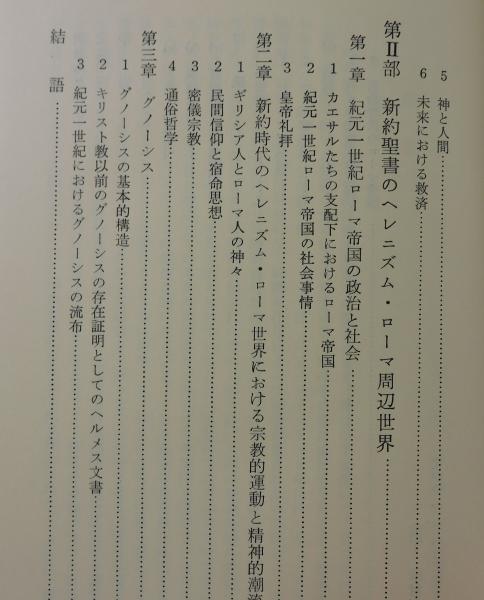 5 神と人間
6 未来における救済
第Ⅱ部 新約聖書のヘレニズム・ローマ周辺世界
第一章 紀元一世紀ローマ帝国の政治と社会
1 カエサルたちの支配下におけるローマ帝国
2 紀元一世紀ローマ帝国の社会事情
3 皇帝礼拝
第二章 新約時代のヘレニズム・ローマ世界における宗教的運動と精神的潮流
1 ギリシア人とローマ人の神々
2 民間信仰と宿命思想
3 密儀宗教
4 通俗哲学
第三章 グノーシス
1 グノーシスの基本的構造
2 キリスト教以前のグノーシスの存在証明としてのヘルメス文書
3 紀元一世紀におけるグノーシスの流布
結語